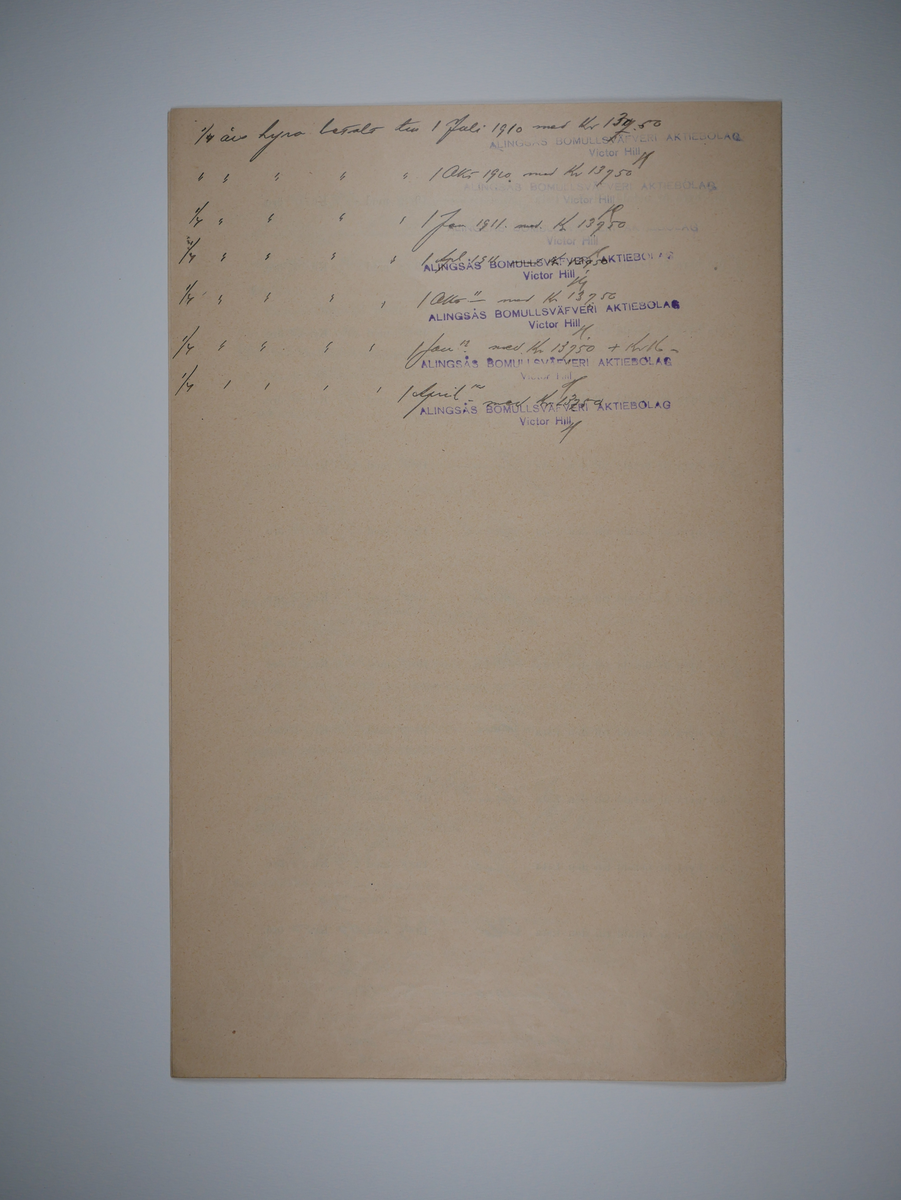 1/4 års hyra betalt till 1 Juli 1910 med Kr 137.50
ALINGSÅS BOMULLSVÄFVERI AKTIEBOLAG
Victor Hill
" " " " " 1 Okt 1910 med Kr 137.50
ALINGSÅS BOMULLSVÄFVERI AKTIEBOLAG
Victor Hill
1/4 " " " 1 Jan 1911. med Kr 137.50
Victor Hill
" " " " 1 April 1911 Kr 137.50
ALINGSÅS BOMULLSVÄFVERI AKTIEBOLAG
Victor Hill
1/4 " " " " 1 Okt " med Kr 137.50
ALINGSÅS BOMULLSVÄFVERI AKTIEBOLAG
Victor Hill
1/4 " " " " 1 Jan med Kr 137.50 + Kr
ALINGSÅS BOMULLSVÄFVERI AKTIEBOLAG
Victor Hill
1/4 " " " " 1 April med Kr 137.50
ALINGSÅS BOMULLSVÄFVERI AKTIEBOLAG
Victor Hill